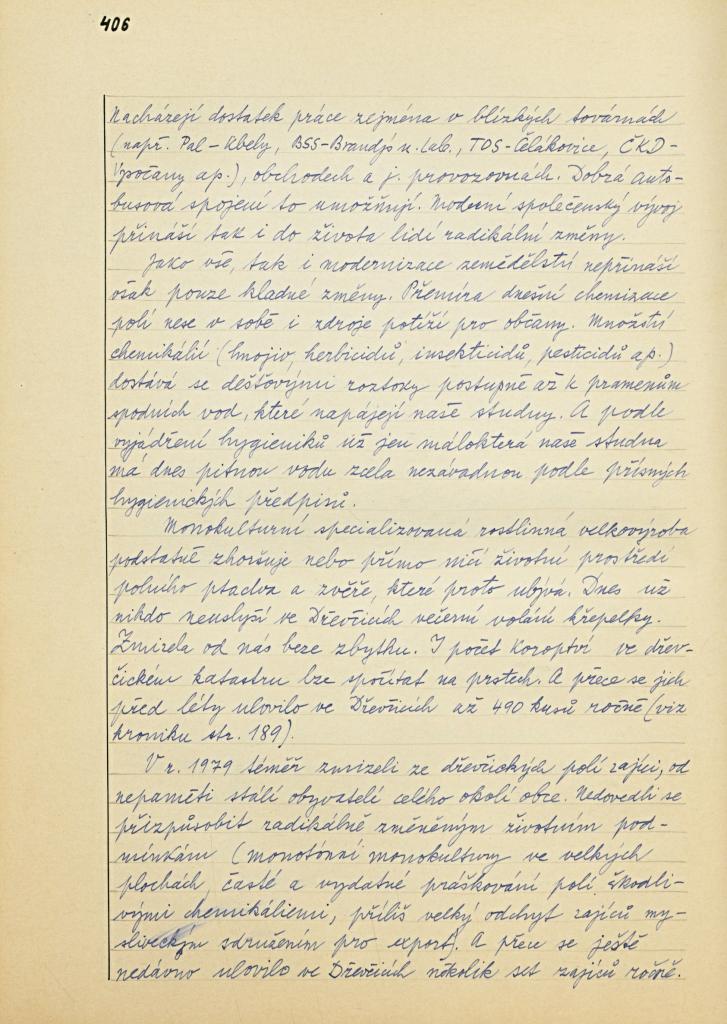 406
Nacházejí dostatek práce zejména v blízkých továrnách
(např. Pal-Kbely, BSS-Brandýs n. Lab., TOS-Čelákovice, ČKD-
počany ap.), obchodech a j. provozovnách. Dobrá auto-
busová spojení to umožňují. Moderní společenský vývoj
přináší tak i do života lidí radikální změny.
Jako vše, tak i modernizace zemědělství nepřináší
však pouze kladné změny. Přemíra dnešní chemizace
polí nese v sobě i zdroje potíží pro občany. Množství
chemikálií (hnojiv, herbicidů, insekticidů, pesticidů ap.)
dostává se dešťovými roztoky postupně až k pramenům
spodních vod, které napájejí naše studny. A podle
vyjádření hygieniků už jen málokterá naše studna
má dnes pitnou vodu zcela nezávadnou podle přísných
hygienických předpisů.
Monokulturní specializovaná rostlinná velkovýroba
podstatně zhoršuje nebo přímo ničí životní prostředí
polního ptactva a zvěře, které proto ubývá. Dnes už
nikdo neuslyší ve Dřevčicích večerní volání křepelky.
Zmizela od nás beze zbytku. I počet koroptví ve dřev-
čickém katastru lze spočítat na prstech. A přece se jich
před léty ulovilo ve Dřevčicích až 490 kusů ročně (viz
kroniku str. 189).
V r. 1979 téměř zmizeli ze dřevčických polí zajíci, od
nepaměti stálí obyvatelé celého okolí obce. Nedovedli se
přizpůsobit radikálně změněným životním pod-
mínkám (monotónní monokultury ve velkých
plochách, časté a vydatné práškování polí škodli-
vými chemikáliemi, příliš velký odchyt zajíců my-
sliveckým sdružením pro export). A přece se ještě
nedávno ulovilo ve Dřevčicích několik set zajíců ročně.